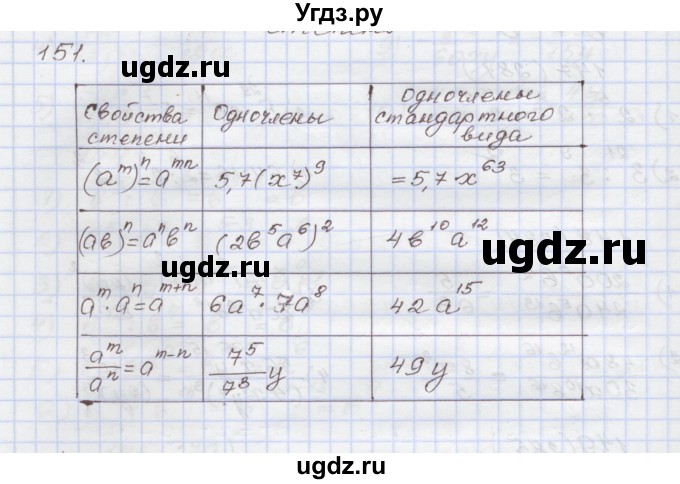 Угдз.ру
степени
151.
ugdz.ru
ugdz.ru
Свойства степени | Одночлены | Одночлены стандартного вида
(a^m)^n = a^{mn} | 5,7(x^7)^9 | = 5,7 · x^{63}
(ab)^n = a^n b^n | (2b^5 a^6)^2 | 4b^{10} a^{12}
ugdz.ru
a^m · a^n = a^{m+n} | 6a^7 · 7a^8 | 42a^{15}
\frac{a^m}{a^n} = a^{m-n} | \frac{7^5}{7^3} y | 49y
ugdz.ru
ugdz.ru